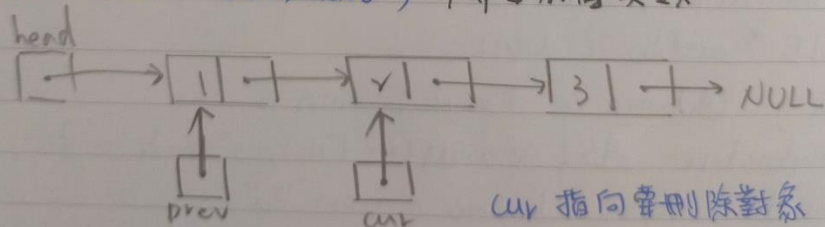 head
1 2 3 NULL
prev cur cur 指向要刪除對象